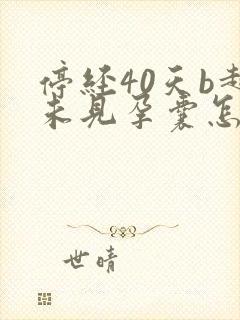 停经40天b超
未见孕囊怎
世晴